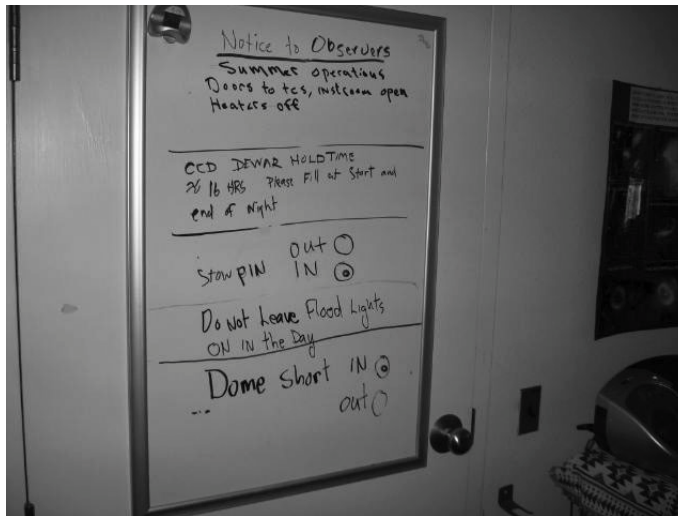 Notice to Observers
Summer operations
Doors to tcs, instroom open
Heaters off
CCD DEWAR HOLDTIME
16 HRS Please Fill at Start and
end of Night
out
Stow PIN IN
Do Not Leave Flood Lights
ON IN the Day
Dome Short IN
out